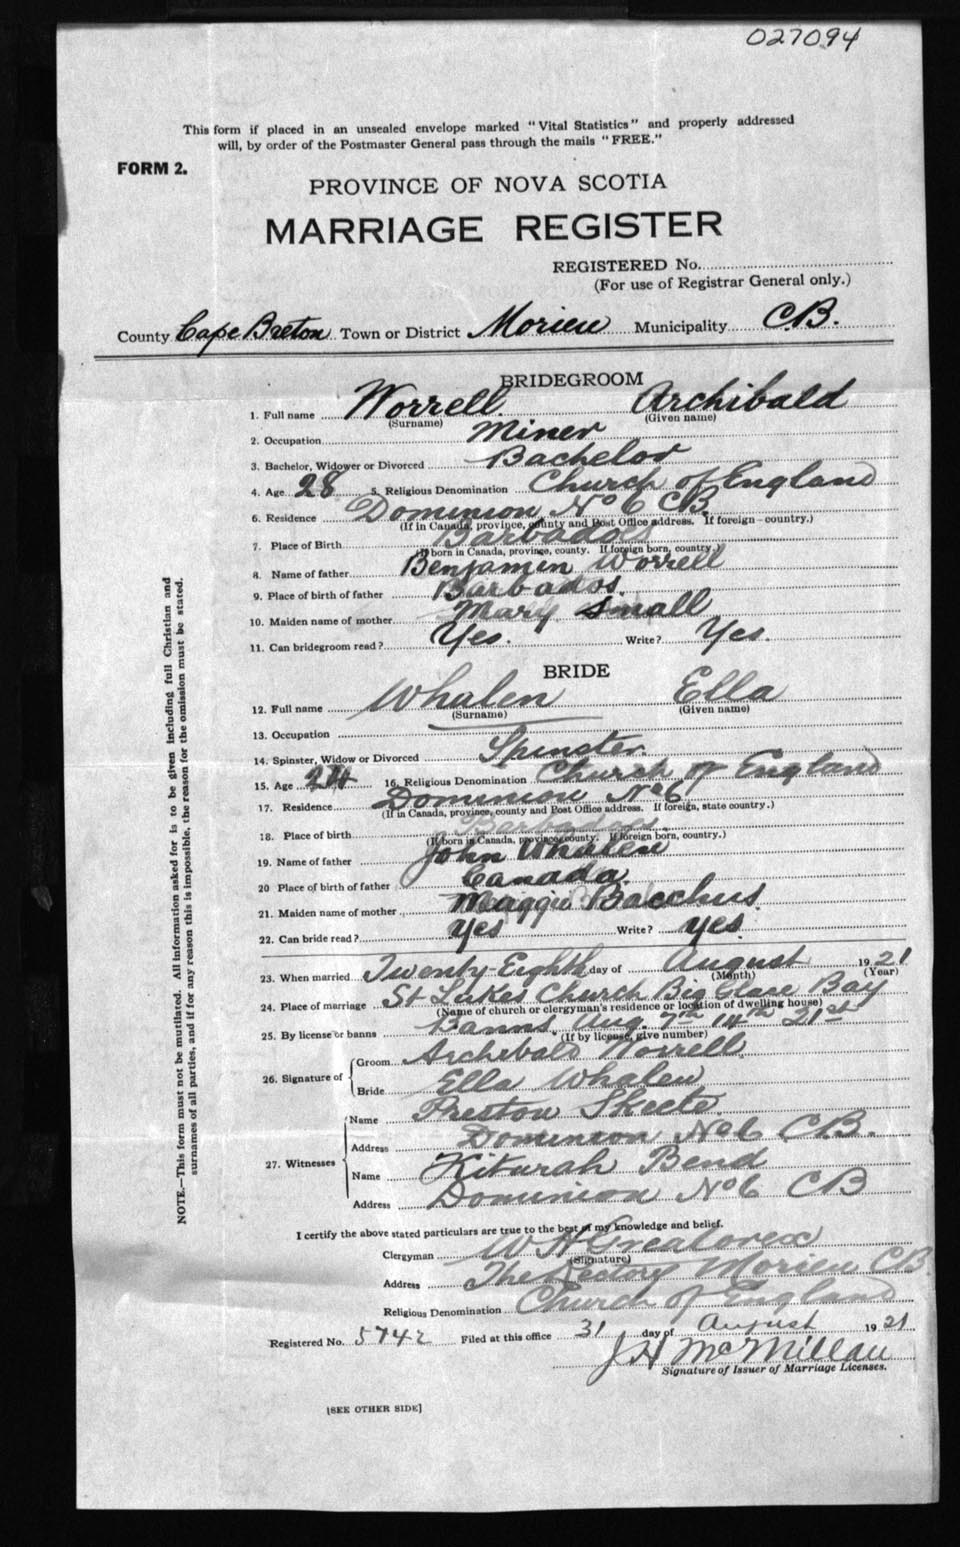 027094
This form if placed in an unsealed envelope marked "Vital Statistics" and properly addressed
will, by order of the Postmaster General pass through the mails "FREE."
FORM 2.
PROVINCE OF NOVA SCOTIA
MARRIAGE REGISTER
REGISTERED No.
(For use of Registrar General only.)
County Cape Breton Town or District Morien Municipality C.B.
BRIDEGROOM
1. Full name Worrell Archibald
(Surname) (Given name)
2. Occupation Miner
3. Bachelor, Widower or Divorced Bachelor
4. Age 28 5. Religious Denomination Church of England
6. Residence Dominion No 6 CB.
(If in Canada, province, county and Post Office address. If foreign—country.)
7. Place of Birth Barbados
(If born in Canada, province, county. If foreign born, country.)
8. Name of father Benjamin Worrell
9. Place of birth of father Barbados.
10. Maiden name of mother Mary Small
11. Can bridegroom read? Yes. Write? Yes.
BRIDE
12. Full name Whalen Ella
(Surname) (Given name)
13. Occupation
14. Spinster, Widow or Divorced Spinster.
15. Age 24 16. Religious Denomination Church of England
17. Residence Dominion No 6
(If in Canada, province, county and Post Office address. If foreign, state country.)
18. Place of birth Barbados
(If born in Canada, province, county. If foreign born, country.)
19. Name of father John Whalen
20 Place of birth of father Canada.
21. Maiden name of mother Maggie Bacchus.
22. Can bride read? Yes Write? Yes.
23. When married Twenty-Eighth day of August 1921
(Month) (Year)
24. Place of marriage St Lukes Church Big Glace Bay
(Name of church or clergyman's residence or location of dwelling house)
25. By license or banns Banns, Aug. 7th 14th 21st
(If by license, give number)
26. Signature of Groom Archibald Worrell.
Bride Ella Whalen
27. Witnesses Name Preston Skeete.
Address Dominion No 6 CB.
Name Kiturah Bend
Address Dominion No 6 CB
I certify the above stated particulars are true to the best of my knowledge and belief.
Clergyman W H Greatorex
(Signature)
Address The Rectory Morien CB.
Religious Denomination Church of England
Registered No. 5742 Filed at this office 31 day of August 1921
J H McMillan
Signature of Issuer of Marriage Licenses.
[SEE OTHER SIDE]
NOTE.—This form must not be mutilated. All information asked for is to be given including full Christian and
surnames of all parties, and if for any reason this is impossible, the reason for the omission must be stated.